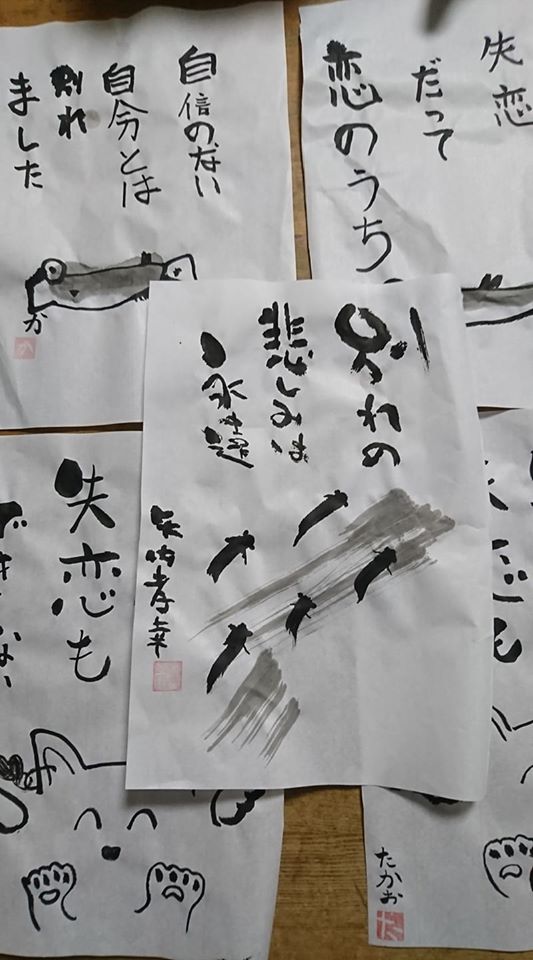 失恋
だって
恋のうち
自信のない
自分とは
別れ
ました
か
か
別れの
悲しみは
永遠
矢内孝幸
失恋も
できない
たかお
た